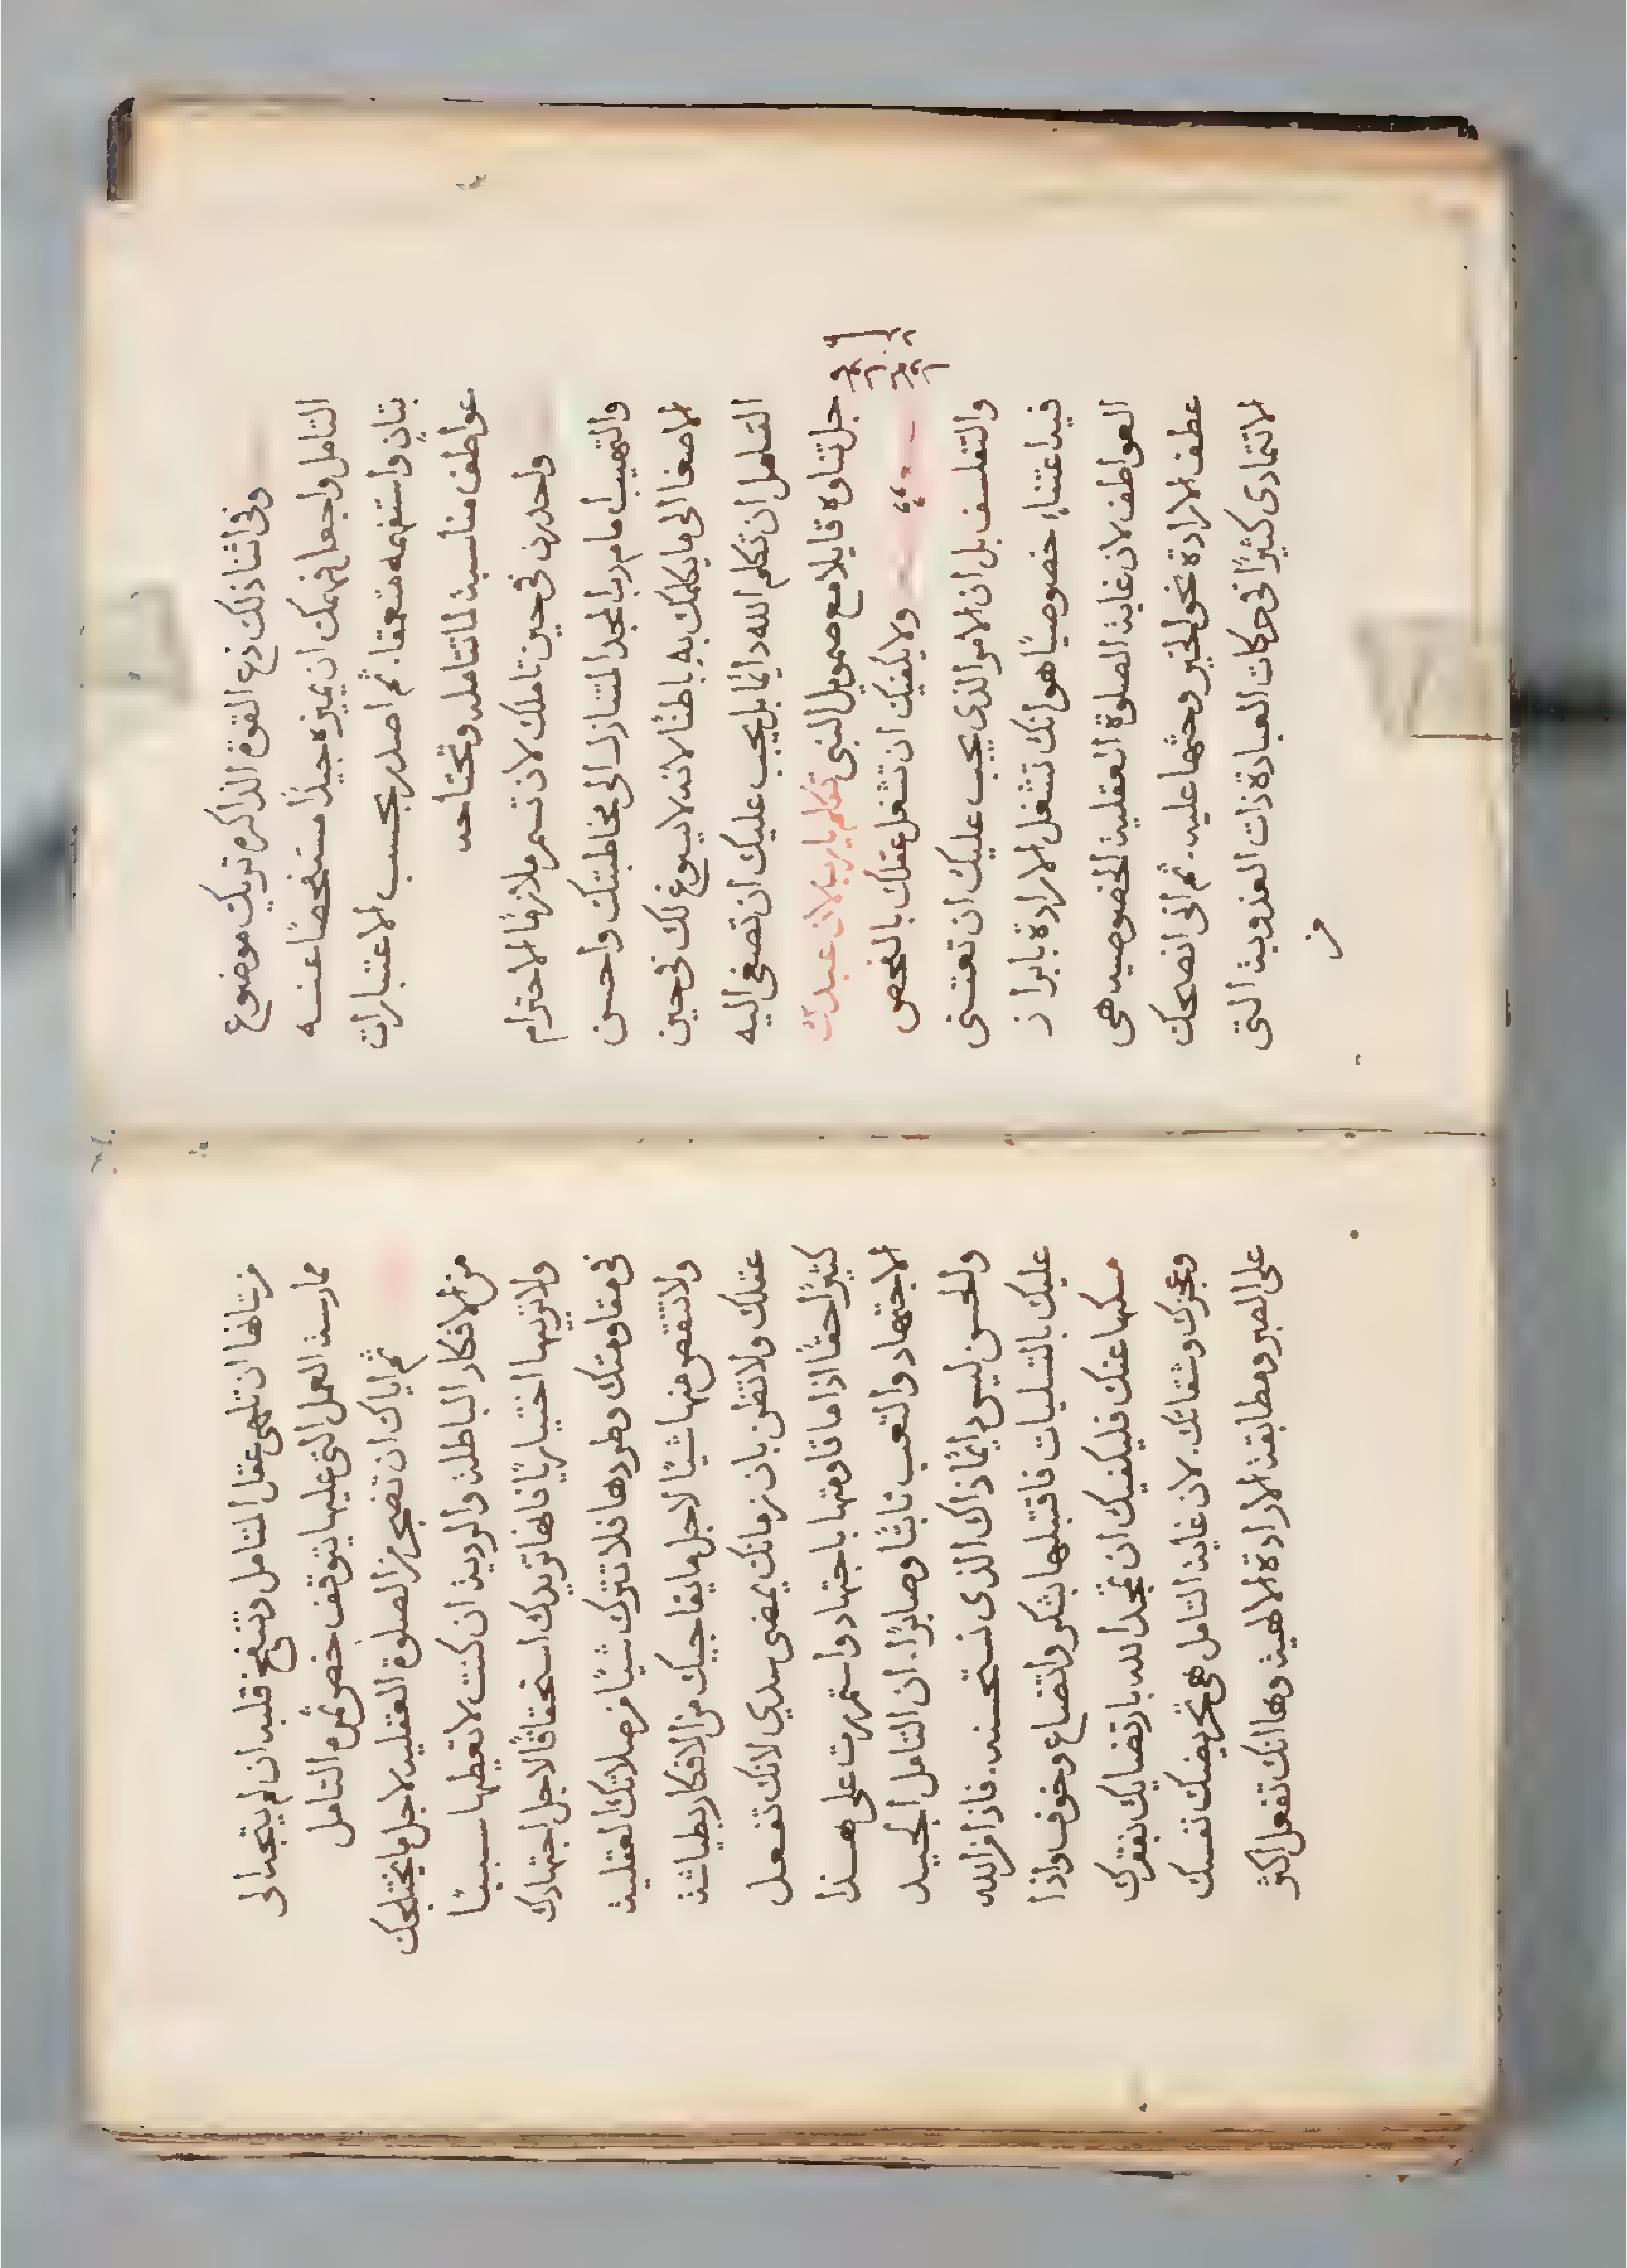 وفى اثنا ذلك دع القوة الذاكرة تريك موضوع
التامل واجعل فهمك ان يميزه جيدًا مستفحصًا عنه
بتانٍ واستفهمه متعمقا. ثم اصدر بحسب الاعتبارات
عواطف مناسبة لما تتامله وتحتاجه
واحدرن فى حين تاملك لان تستمر ملازمًا الاحترام
والتهيب امام رب المجد المتنازل الى مخاطبتك واحسن
الاصغا الى ما يكلمك به باطنًا لانه لا يسوغ لك فى حين
التامل ان تكلم الله دايمًا بل يجب عليك ان تصغى اليه
جل تناوه قايلا مع صمويل النبى تكلم يا رب لان عبدك
ولا يكفيك ان تشغل عقلك بالفحص
والتفلسف بل ان الامر الذى يجب عليك ان تعتنى
فيه اعتناءً خصوصيًا هو انك تشغل الارادة بابراز
العواطف لان غاية الصلوة العقلية الخصوصيه هى
عطف الارادة نحو الخير وحثها عليه. ثم انى انصحك
لا تتمادى كثيرًا فى حركات العبادة ذات العذوبة التى
من
من شانها ان تلهى عقل المتامل وتنفخ قلبه ان لم يتجه الى
ممارسة العمل التى عليها يتوقف خصر ثمرة التامل
ثم اياك ان تضجر من الصلوة العقليه لاجل ما يختلجك
من الافكار الباطلة والردية ان كنت لا تعطيها سببًا
ولا تربيها اختياريًا فانها تزيدك استحقاقًا لاجل اجتهادك
فى مقاومتك وطردها فلا تترك شيًا من صلاتك العقلية
ولا تنقص منها شيًا لاجل ما يفاجيك من الافكار بطياشة
عقلك ولا تظن بان زمانك يمضى سدي لانك تفعل
كثيرًا حقًا اذا ما قاومتها باجتهاد واستمريت على هذا
الاجتهاد والتعب ثابتًا وصابرًا. ان التامل الجيد
والحسن ليس دايمًا ذاك الذى نستحسنه. فاذا من الله
عليك بالتسليات فاقتبلها بشكر واتضاع وخوف واذا
مسكها عنك فليكفيك ان تمجد الله بارتضايك بفقرك
وعجزك وشقائك. لان غاية التامل هى تحريضك نفسك
على الصبر ومطابقة الارادة الالهية وها انك تفعل اكثر